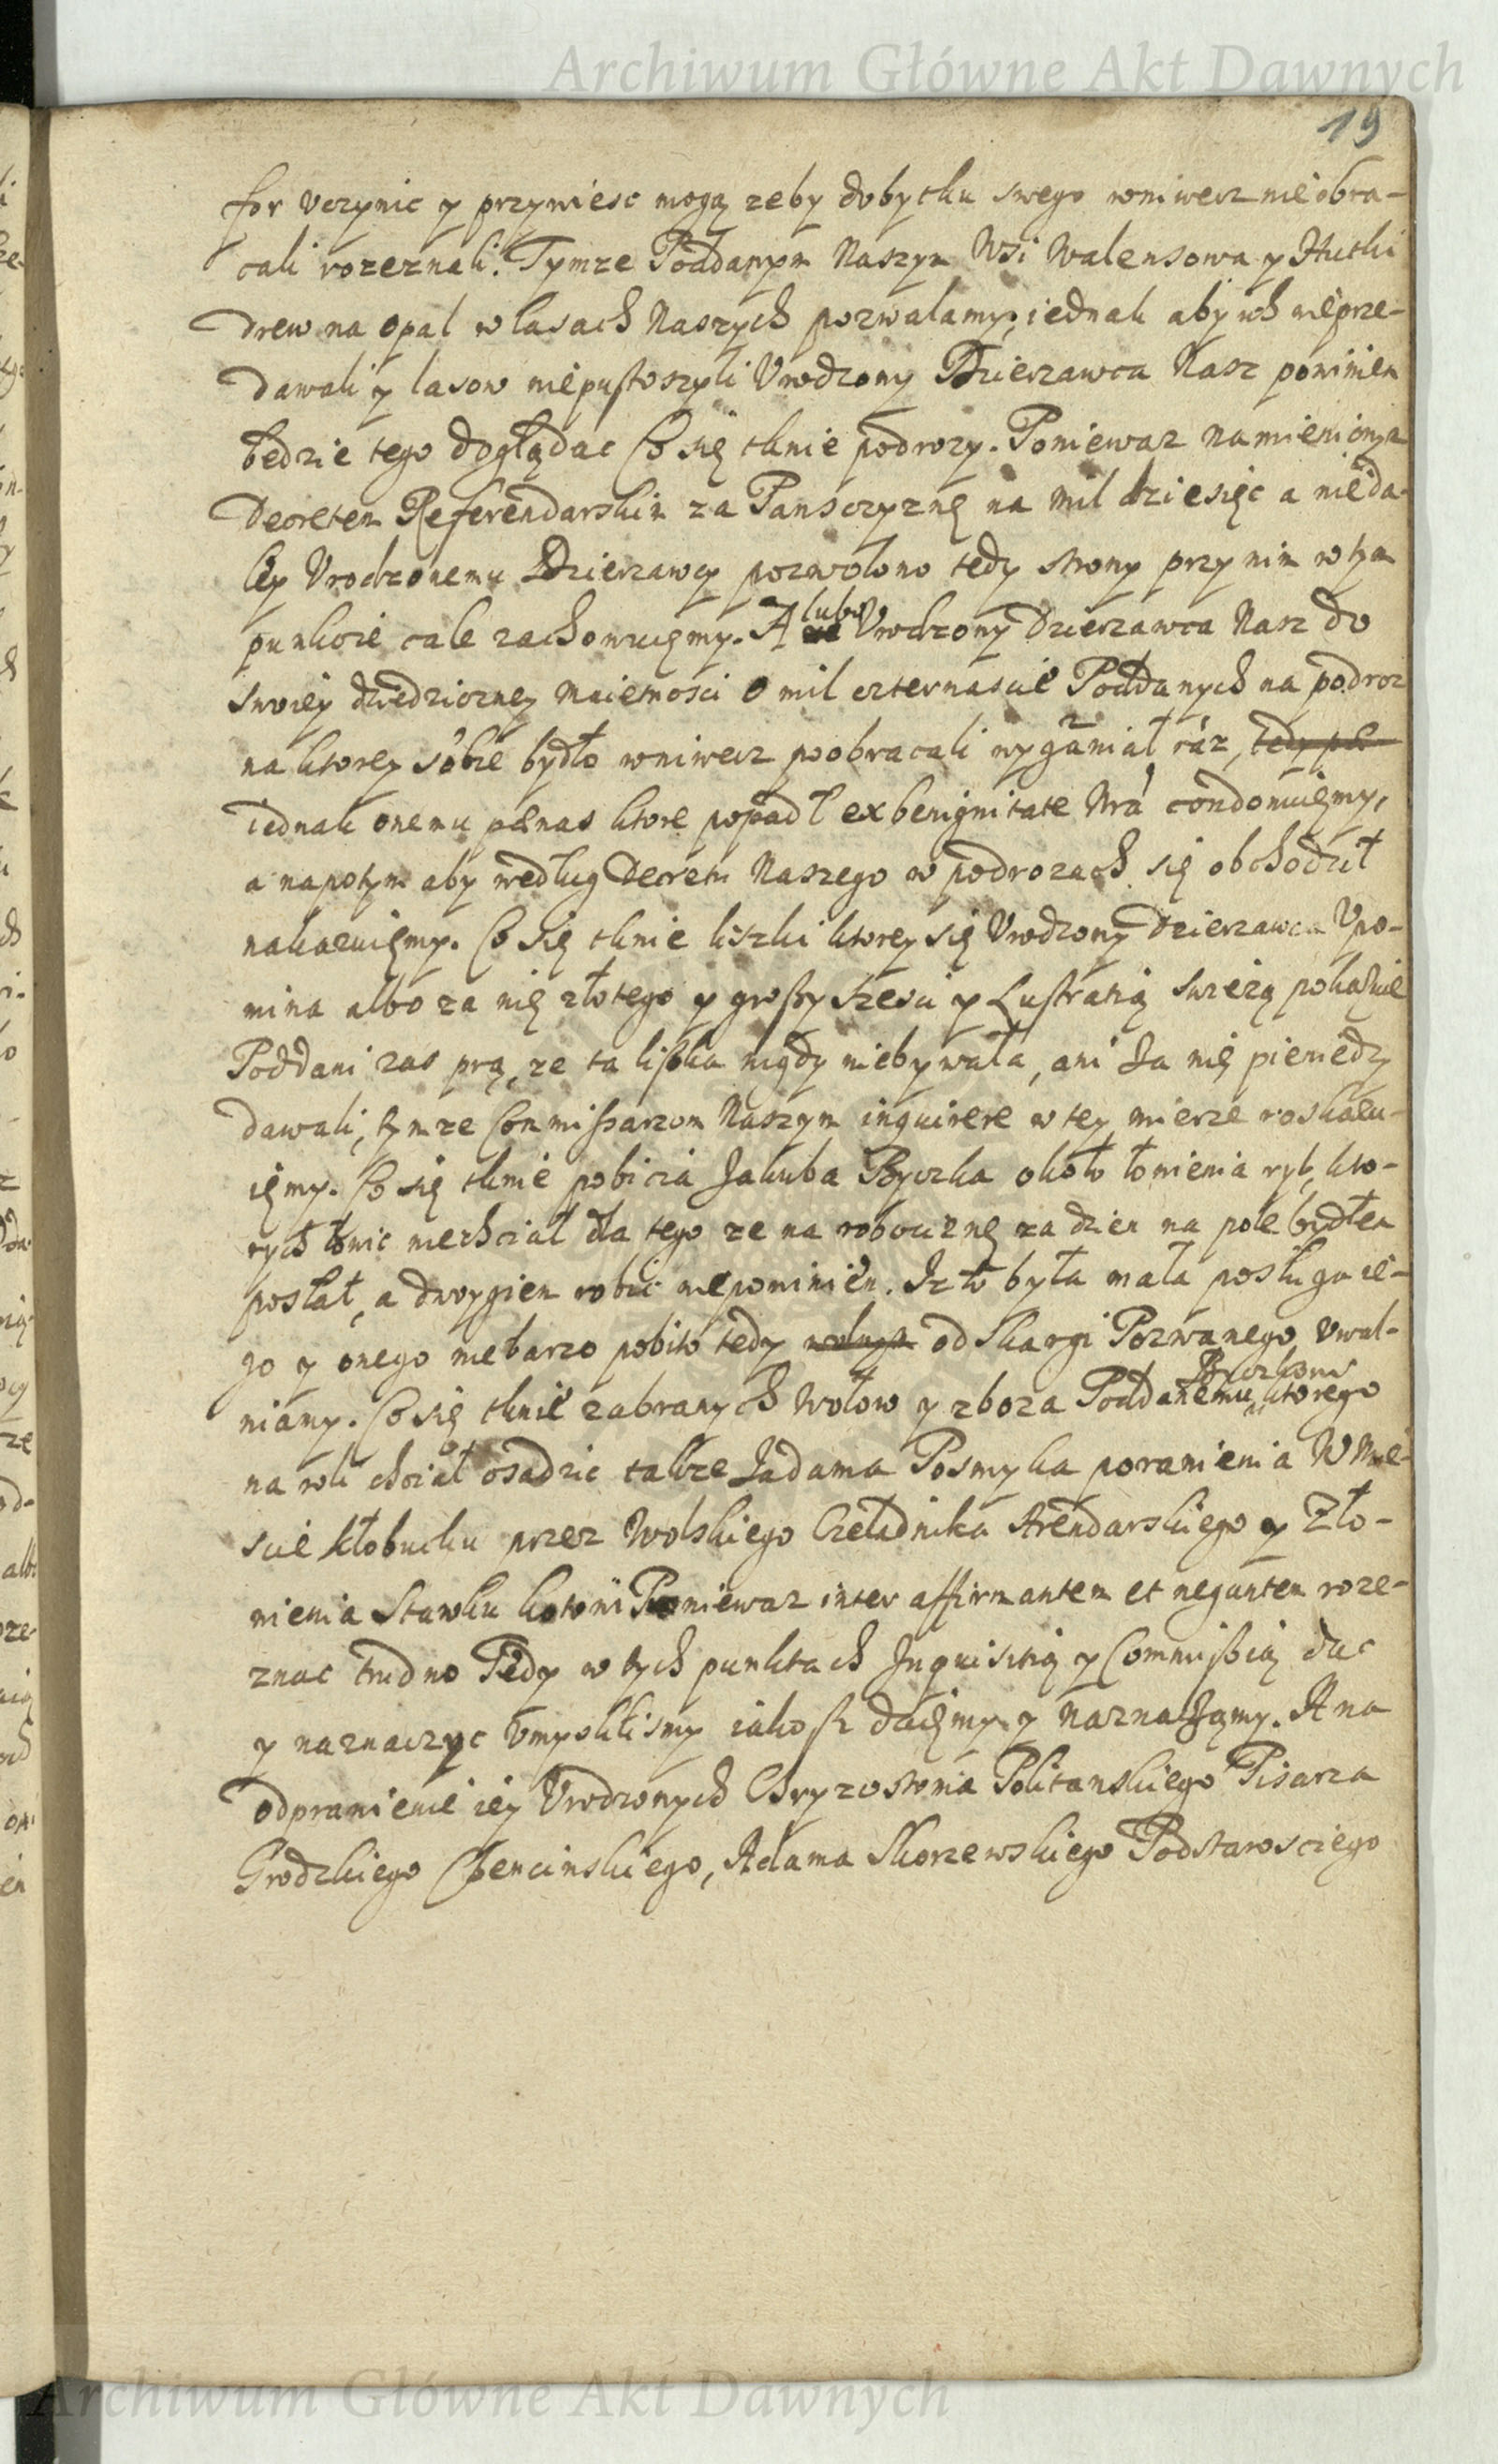 Archiwum Główne Akt Dawnych
19
for uczynic y przyniesc mogą zeby dobytku swego wniwecz nie obra-
cali rozeznali. Tymze Poddanym Naszym Wsi Walensowa y Hutki
drew na opał w lasach Naszych pozwalamy, iednak aby ich nie prze-
dawali y lasow nie pustoszyli Urodzony Dzierzawca Nasz powinien
będzie tego doglądac Co się tknie podrozy. Poniewaz namienionym
Decretem Referendarskim za Panszczyznę na mil dziesięc a nie da-
ley Urodzonemu Dzierzawcy pozwolono tedy strony przy nim w tym
punkcie cale zachowuiemy. A lubo Urodzony Dzierzawca Nasz do
swoiey dziedziczney maiętnosci o mil czternascie Poddanych na podroz
na ktorey sobie bydło wniwecz poobracali wyganiał raz, tedy
iednak onemu pænas ktore popadł ex benignitate Nrã condonuiemy,
a napotym aby według Decretu Naszego w podrozach się obchodził
nakazuiemy. Co się tknie liszki ktorey się Urodzony Dzierzawca Upo-
mina albo za nię złotego y groszy szesci y Lustratią swiezą pokazuie
Poddani zas prą, ze ta liszka nigdy nie bywała, ani za nię pieniedzy
dawali, tymze Commissarzom Naszym inquirere w tey mierze roskazu-
iemy. Co się tknie pobicia Jakuba Byczka około łowienia ryb, kto-
rych łowic niechciał dla tego ze na robociznę za dzien na pole bydłem
posłał, a dwygiem robic nie powinien. Iz to była mała posługa ie-
go y onego nie barzo pobito tedy od Skargi Pozwanego uwal-
niamy. Co się tknie zabranych wołow y zboza Poddanemu Byczkowi ktorego
na roli chciał osadzic takze Jadama Posmyka poranienia W Mie-
scie Kłobucku przez Wolskiego Czeladnika Arendarskiego y Zło-
wienia Stawku Poniewaz inter affirmantem et negantem roze-
znac trudno Tedy w tych punktach Inquisitią y Commissią dac
y naznaczyc Umyslilismy iakosz daiemy y naznaczamy. A na
odprawienie iey Urodzonych Chryzostoma Politanskiego Pisarza
Grodzkiego Chencinskiego, Adama Skorzewskiego Podstarosciego
Archiwum Główne Akt Dawnych